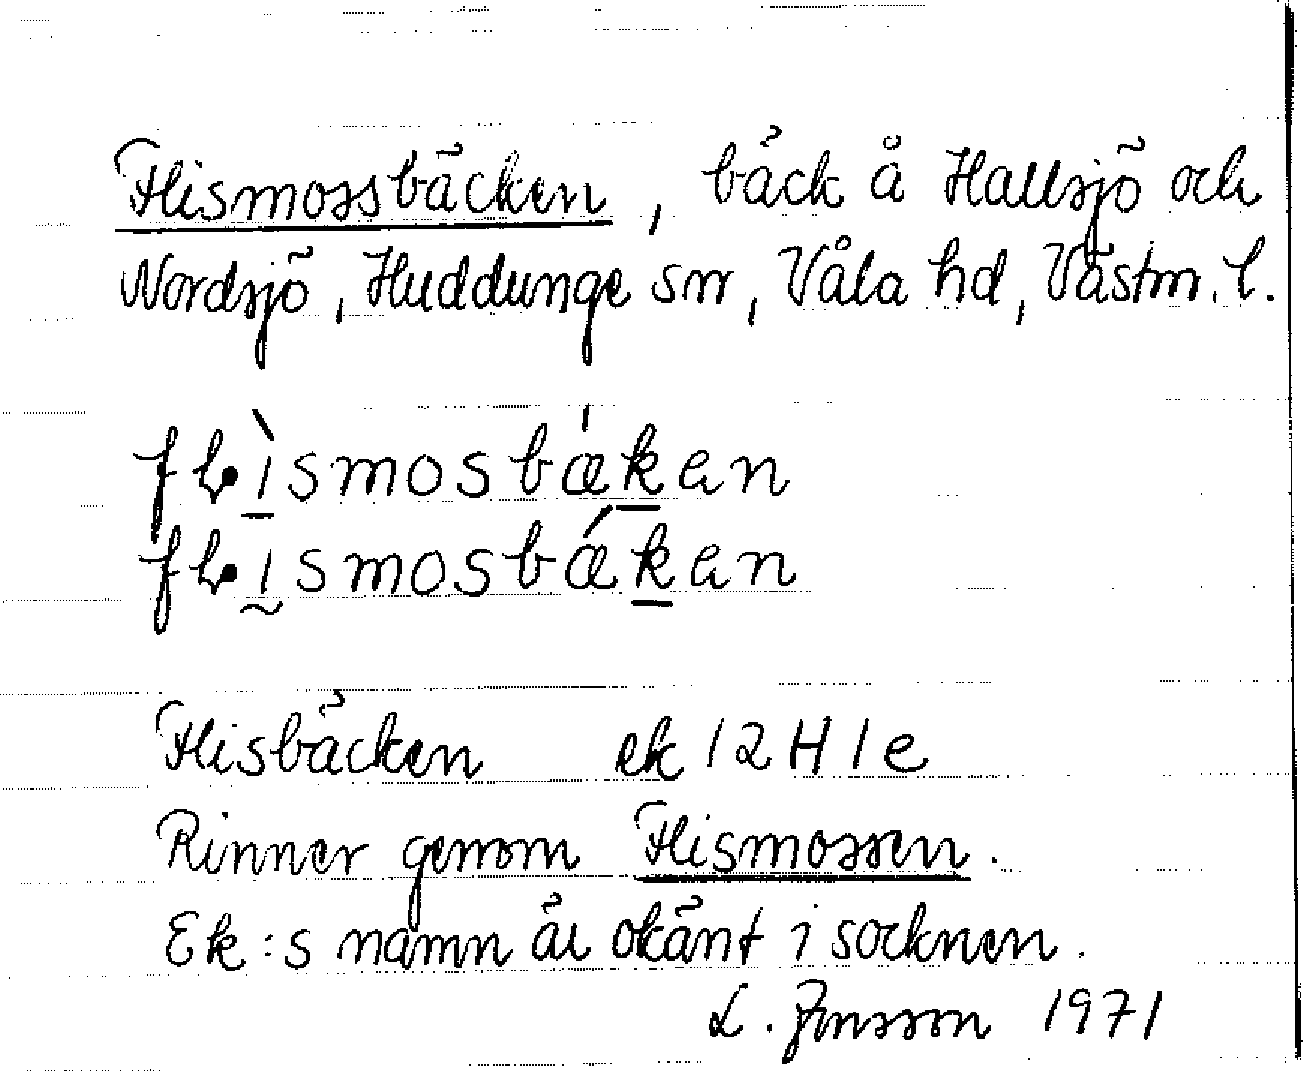 Flismossbäcken, bäck å Hallsjö och
Nordsjö, Huddunge sn, Våla hd, Västm. l.
flìsmosbákan
flismosbákan
Flisbäcken ek 12H1e
Rinner genom Flismossen.
Ek:s namn är okänt i socknen.
L. Jonsson 1971